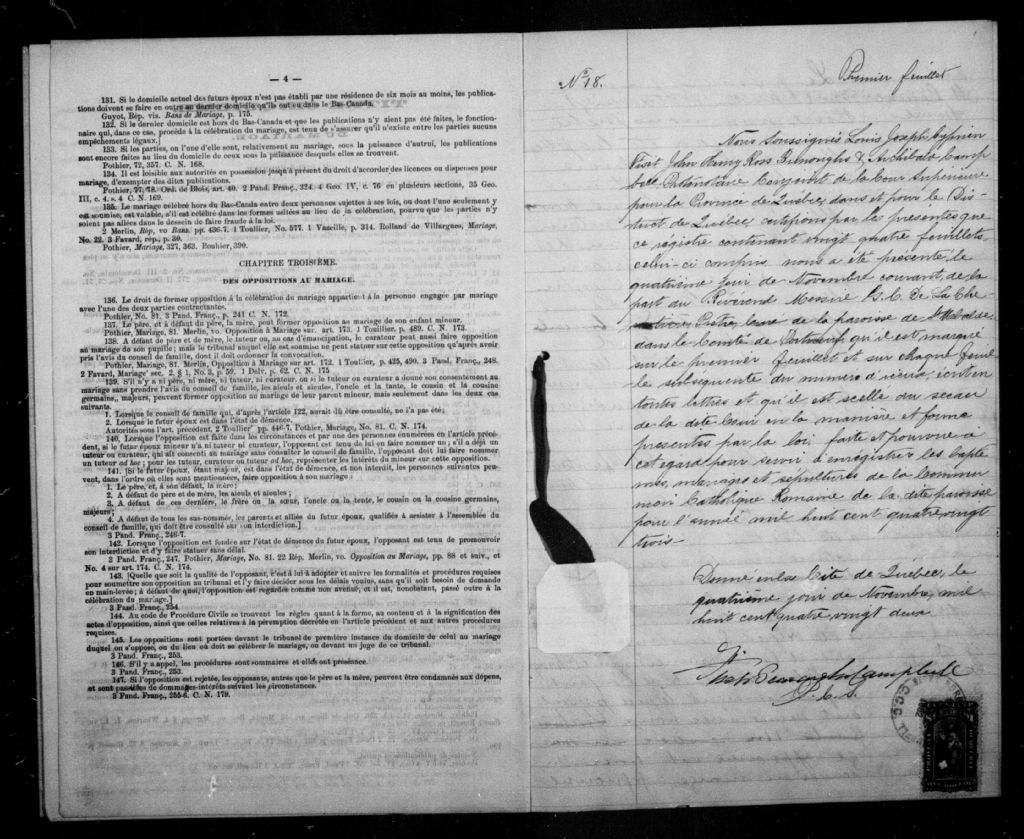 — 4 —
131. Si le domicile actuel des futurs époux n'est pas établi par une résidence de six mois au moins, les publica-
tions doivent se faire en outre au dernier domicile qu'ils ont eu dans le Bas-Canada.
Guyot, Rép. vis. Bans de Mariage, p. 175.
132. Si le dernier domicile est hors du Bas-Canada et que les publications n'y aient pas été faites, le fonction-
naire qui, dans ce cas, procède à la célébration du mariage, est tenu de s'assurer qu'il n'existe entre les parties aucuns
empêchements légaux.]
133. Si les parties, ou l'une d'elle sont, relativement au mariage, sous la puissance d'autrui, les publications
sont encore faites au lieu du domicile de ceux sous la puissance desquels elles se trouvent.
Pothier, 72, 357. C. N. 168.
134. Il est loisible aux autorités en possession jusqu'à présent du droit d'accorder des licences ou dispenses pour
mariage, d'exempter des dites publications.
Pothier, 77, 78. Ord. de Blois, art. 40. 2 Pand. Franç., 324. 4 Geo. IV, c. 76 en plusieurs sections, 35 Geo.
III, c. 4. s. 4 C. N. 169.
135. Le mariage célébré hors du Bas-Canda entre deux personnes sujettes à ses lois, ou dont l'une seulement y
est soumise, est valable, s'il est célébré dans les formes usitées au lieu de la célébration, pourvu que les parties n'y
soient pas allées dans le dessein de faire fraude à la loi.
2 Merlin, Rép, vo Bans. pp. 436-7. 1 Toullier, No. 577. 1 Vazeille, p. 314. Rolland de Villargues, Mariage,
No. 22. 3 Favard, rép., p. 39.
Pothier, Mariage, 327, 363. Bouhier, 390.
CHAPITRE TROISIÈME.
DES OPPOSITIONS AU MARIAGE.
136. Le droit de former opposition à la célébration du mariage appartient à la personne engagée par mariage
avec l'une des deux parties contractantes.
Pothier, No. 81. 3 Pand. Franç., p. 241 C. N. 172.
137. Le père, et à défaut du père, la mère, peut former opposition au mariage de son enfant mineur.
Pothier, Mariage, 81. Merlin, vo. Opposition à Mariage sur. art. 173. 1 Touillier. p. 489. C. N. 173.
138. A défaut de père et de mère, le tuteur ou, au cas d'émancipation, le curateur peut aussi faire opposition
au mariage de son pupille; mais le tribunal auquel elle est soumise ne peut statuer sur cette opposition qu'après avoir
pris l'avis du conseil de famille, dont il doit ordonner la convocation.
Pothier, Mariage, 81. Merlin, Opposition à Mariage sur art. 172. 1 Toullier, p. 425, 490. 3 Pand. Franç., 248.
2 Favard, Mariage' sec. 2, § 1, No. 3, p. 59. 1 Dalv, p. 62. C. N. 175
139. S'il n'y a ni père, ni mère, ni tuteur, ni curateur, ou si le tuteur ou curateur a donné son consentement au
mariage sans prendre l'avis du conseil de famille, les aïeuls et aïeules, l'oncle et la tante, le cousin et la cousine
germains, majeurs, peuvent former opposition au mariage de leur parent mineur, mais seulement dans les deux cas
suivants.
1. Lorsque le conseil de famille qui, d'après l'article 122, aurait dû être consulté, ne l'a pas été;
2. Lorsque le futur époux est dans l'état de démence.
Autorités sous l'art. précédent. 2 Toullier' pp. 446-7. Pothier, Mariage, No. 81. C. N. 174.
140. Lorsque l'opposition est faite dans les circonstances et par une des personnes énumérées en l'article précé-
dent, si le futur époux mineur n'a ni tuteur ni curateur, l'opposant est tenu de lui en faire nommer un; s'il a déjà un
tuteur ou curateur, qui ait consenti au mariage sans consulter le conseil de famille, l'opposant doit lui faire nommer
un tuteur ad hoc; pour les tuteur, curateur ou tuteur ad hoc, représenter les intérêts du mineur sur cette opposition.
141. [Si le futur époux, étant majeur, est dans l'état de démence, et non interdit, les personnes suivantes peu-
vent, dans l'ordre où elles sont mentionnées, faire opposition à son mariage:
1. Le père, et, à son défaut, la mère;
2. A défaut de père et de mère, les aïeuls et aïeules;
3. A défaut de ces derniers, le frère ou la sœur, l'oncle ou la tente, le cousin ou la cousine germains,
majeurs;
4. A défaut de tous les sus-nommés, les parents et alliés du futur époux, qualifiés à assister à l'assemblée du
conseil de famille, qui doit être consulté sur son interdiction.]
3 Pand. Franç., 246-7.
142. Lorsque l'opposition est fondée sur l'état de démence du futur époux, l'opposant est tenu de promouvoir
son interdiction et d'y faire statuer sans délai.
3 Pand. Franç., 247. Pothier, Mariage, No. 81. 22 Rép. Merlin, vo. Opposition au Mariage, pp. 88 et suiv., et
No. 4 sur art. 174. C. N. 174.
143. [Quelle que soit la qualité de l'opposant, c'est à lui à adopter et suivre les formalités et procédures requises
pour soumettre son opposition au tribunal et l'y faire décider sous les délais voulus, sans qu'il soit besoin de demande
en main-levée; à défaut de quoi, l'opposition est regardée comme non avenue, et il est, nonobstant, passé outre à la
célébration du mariage.]
3 Pand. Franç., 254.
144. Au code de Procédure Civile se trouvent les règles quant à la forme, au contenu et à la signification des
actes d'opposition, ainsi que celles relatives à la péremption décrétée en l'article précédent et aux autres procédures
requises.
145. Les oppositions sont portées devant le tribunal de première instance du domicile de celui au mariage
duquel on s'oppose, ou du lieu où doit se célébrer le mariage, ou devant un juge de ce tribunal.
3 Pand. Franç., 253.
146. S'il y a appel, les procédures sont sommaires et elles ont présence.
3 Pand. Franç., 253.
147. Si l'opposition est rejetée, les opposants, autres que le père et la mère, peuvent être condamnés aux dépens,
et sont passibles de dommages-intérêts suivant les circonstances.
3 Pand. Franç., 255-6. C. N. 179.
No 18.
Premier feuillet
Nous Soussignés Louis Joseph Cyprien
Fiset John Henry Ross Burroughs & Archibald Camp
bell Protonotaire Conjoint de la Cour Supérieure
pour la Province de Québec, dans et pour le Dis-
trict de Québec certifions par les présentes que
ce registre contenant vingt quatre feuillets,
celui-ci compris nous a été présenté, le
quatrième jour de Novembre courant, de la
part du Révérend Messire D. C. De La Che
vrotière Prêtre, Curé de la paroisse de
dans le Comté de Portneuf qu'il est marqué
sur le premier feuillet et sur chaque feuil
le subséquente du numéro d'icelui contien
toutes lettres et qu'il est scellé du sceau
de la dite Cour en la manière et forme
presentes par la loi faite et pourvue à
cet égard pour servir d'enregistrer les bapte
mes, mariages et sépultures de la Commu
nion Catholique Romaine de la dite paroisse
pour l'année mil huit cent quatre vingt
trois.
Donné en la Cité de Québec, le
quatrième jour de Novembre, mil
huit cent quatre vingt deux
Fiset Burroughs Campbell
P. C. S.